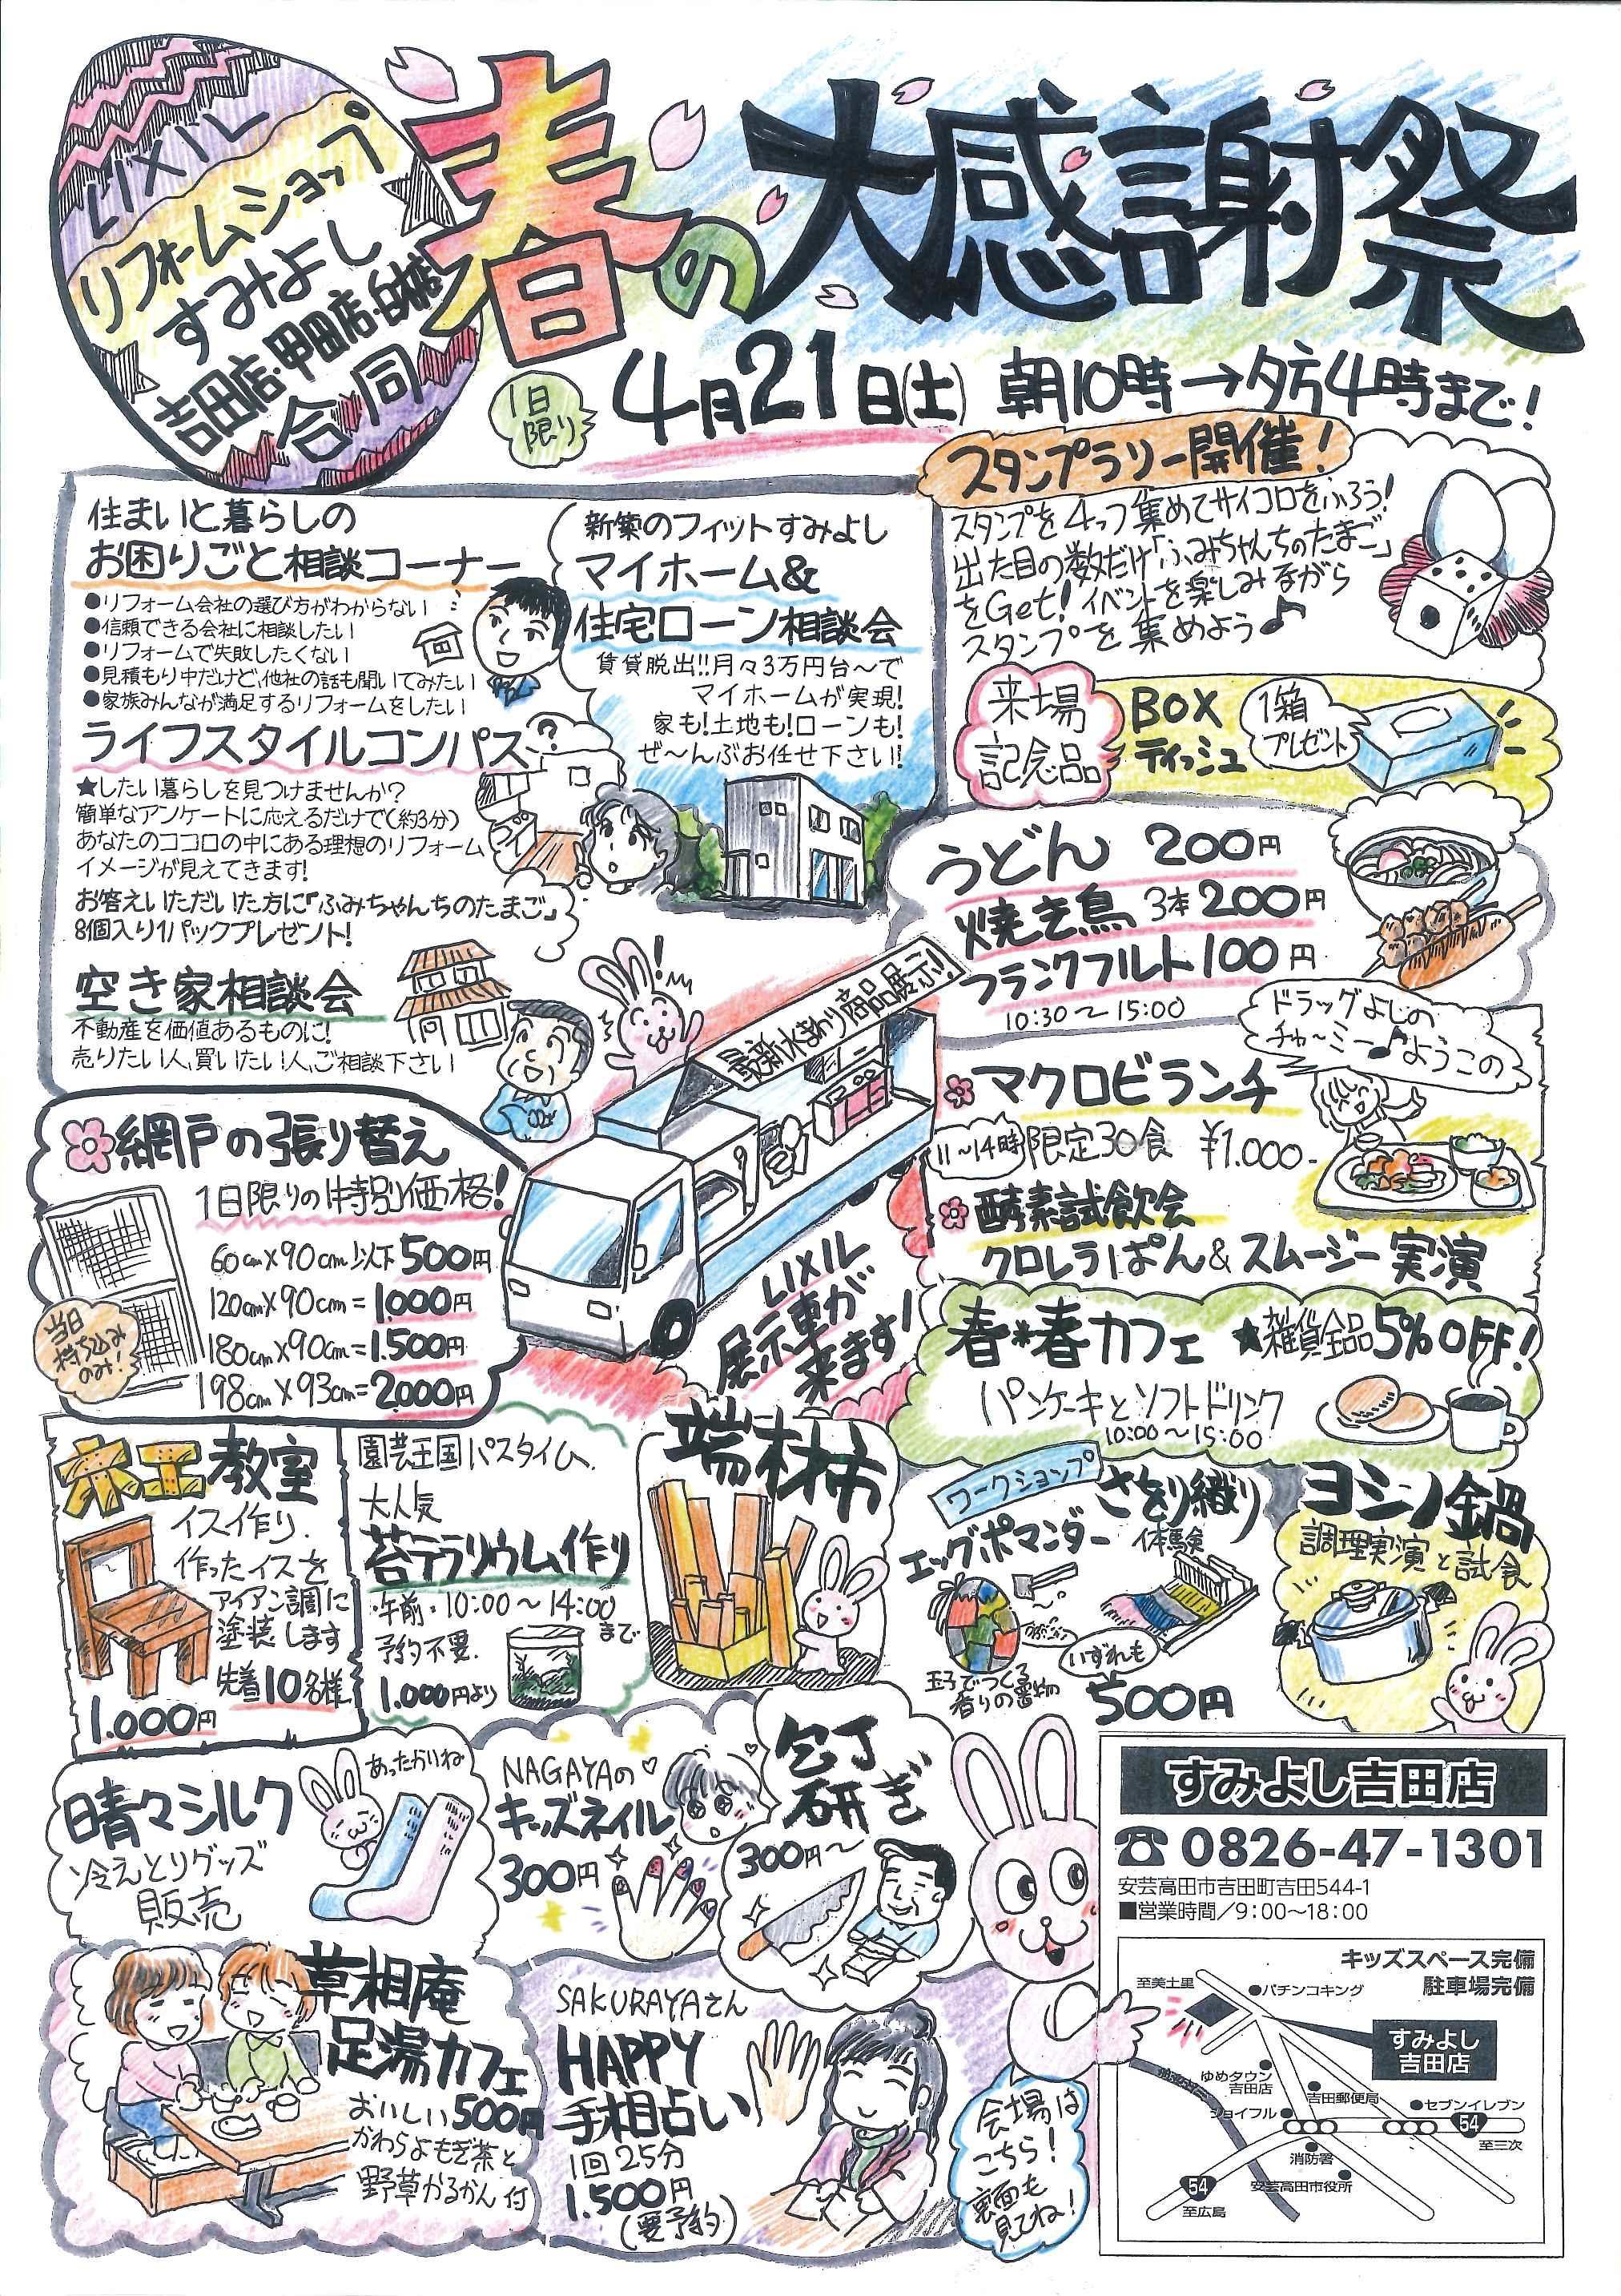 LIXIL
リフォームショップ
すみよし
吉田店・甲田店・白木店
合同
春の大感謝祭
1日
限り
4月21日(土) 朝10時→夕方4時まで!
住まいと暮らしの
お困りごと相談コーナー
●リフォーム会社の選び方がわからない
●信頼できる会社に相談したい
●リフォームで失敗したくない
●見積もり中だけど、他社の話も聞いてみたい
●家族みんなが満足するリフォームをしたい
ライフスタイルコンパス
★したい暮らしを見つけませんか?
簡単なアンケートに応えるだけで(約3分)
あなたのココロの中にある理想のリフォーム
イメージが見えてきます!
お答えいただいた方に「ふみちゃんちのたまご」
8個入り1パックプレゼント!
空き家相談会
不動産を価値あるものに!
売りたい人、買いたい人、ご相談下さい
新築のフィットすみよし
マイホーム&
住宅ローン相談会
賃貸脱出!!月々3万円台〜で
マイホームが実現!
家も!土地も!ローンも!
ぜ〜んぶお任せ下さい!
スタンプラリー開催!
スタンプを4つ集めてサイコロをふろう!
出た目の数だけ「ふみちゃんちのたまご」
をGet!イベントを楽しみながら
スタンプを集めよう♪
来場
記念品
BOX
ティッシュ
1箱
プレゼント
うどん 200円
焼き鳥 3本200円
フランクフルト100円
10:30〜15:00
最新水まわり商品展示!
LIXIL
展示車が
来ます!
ドラッグよしの
チャ〜ミー♪ようこの
マクロビランチ
11〜14時 限定30食 ¥1.000-
酵素試飲会
クロレラぱん&スムージー実演
網戸の張り替え
1日限りの特別価格!
60cm×90cm以下500円
120cm×90cm=1000円
180cm×90cm=1.500円
198cm×93cm=2.000円
当日
持ち込み
のみ!
春*春カフェ ★雑貨全品5%OFF!
パンケーキとソフトドリンク
10:00〜15:00
木工教室
イス作り.
作ったイスを
アイアン調に
塗装します
先着10名様
1.000円
園芸王国パスタイム.
大人気
苔テラリウム作り
午前・10:00〜14:00
まで
予約不要.
1.000円より
端材市
ワークショップ
エッグポマンダー
玉子でつくる
香りの置物
さをり織り
体験
いずれも
500円
ヨシノ鍋
調理実演と試食
晴々シルク
冷えとりグッズ
販売
あったかいね
NAGAYAの♡
キッズネイル
300円
包丁
研ぎ
300円〜
草相庵
足湯カフェ
おいしい500円
かわらよもぎ茶と
野草かるかん付
SAKURAYAさん
HAPPY
手相占い
1回25分
1.500円
(要予約)
会場は
こちら!
裏面も
見てね!
すみよし吉田店
☎0826-47-1301
安芸高田市吉田町吉田544-1
■営業時間/9:00〜18:00
キッズスペース完備
駐車場完備
至美土里
●パチンコキング
すみよし
吉田店
ゆめタウン
吉田店
●吉田郵便局
ジョイフル●
●セブンイレブン
54
至三次
消防署
安芸高田市役所
54
至広島